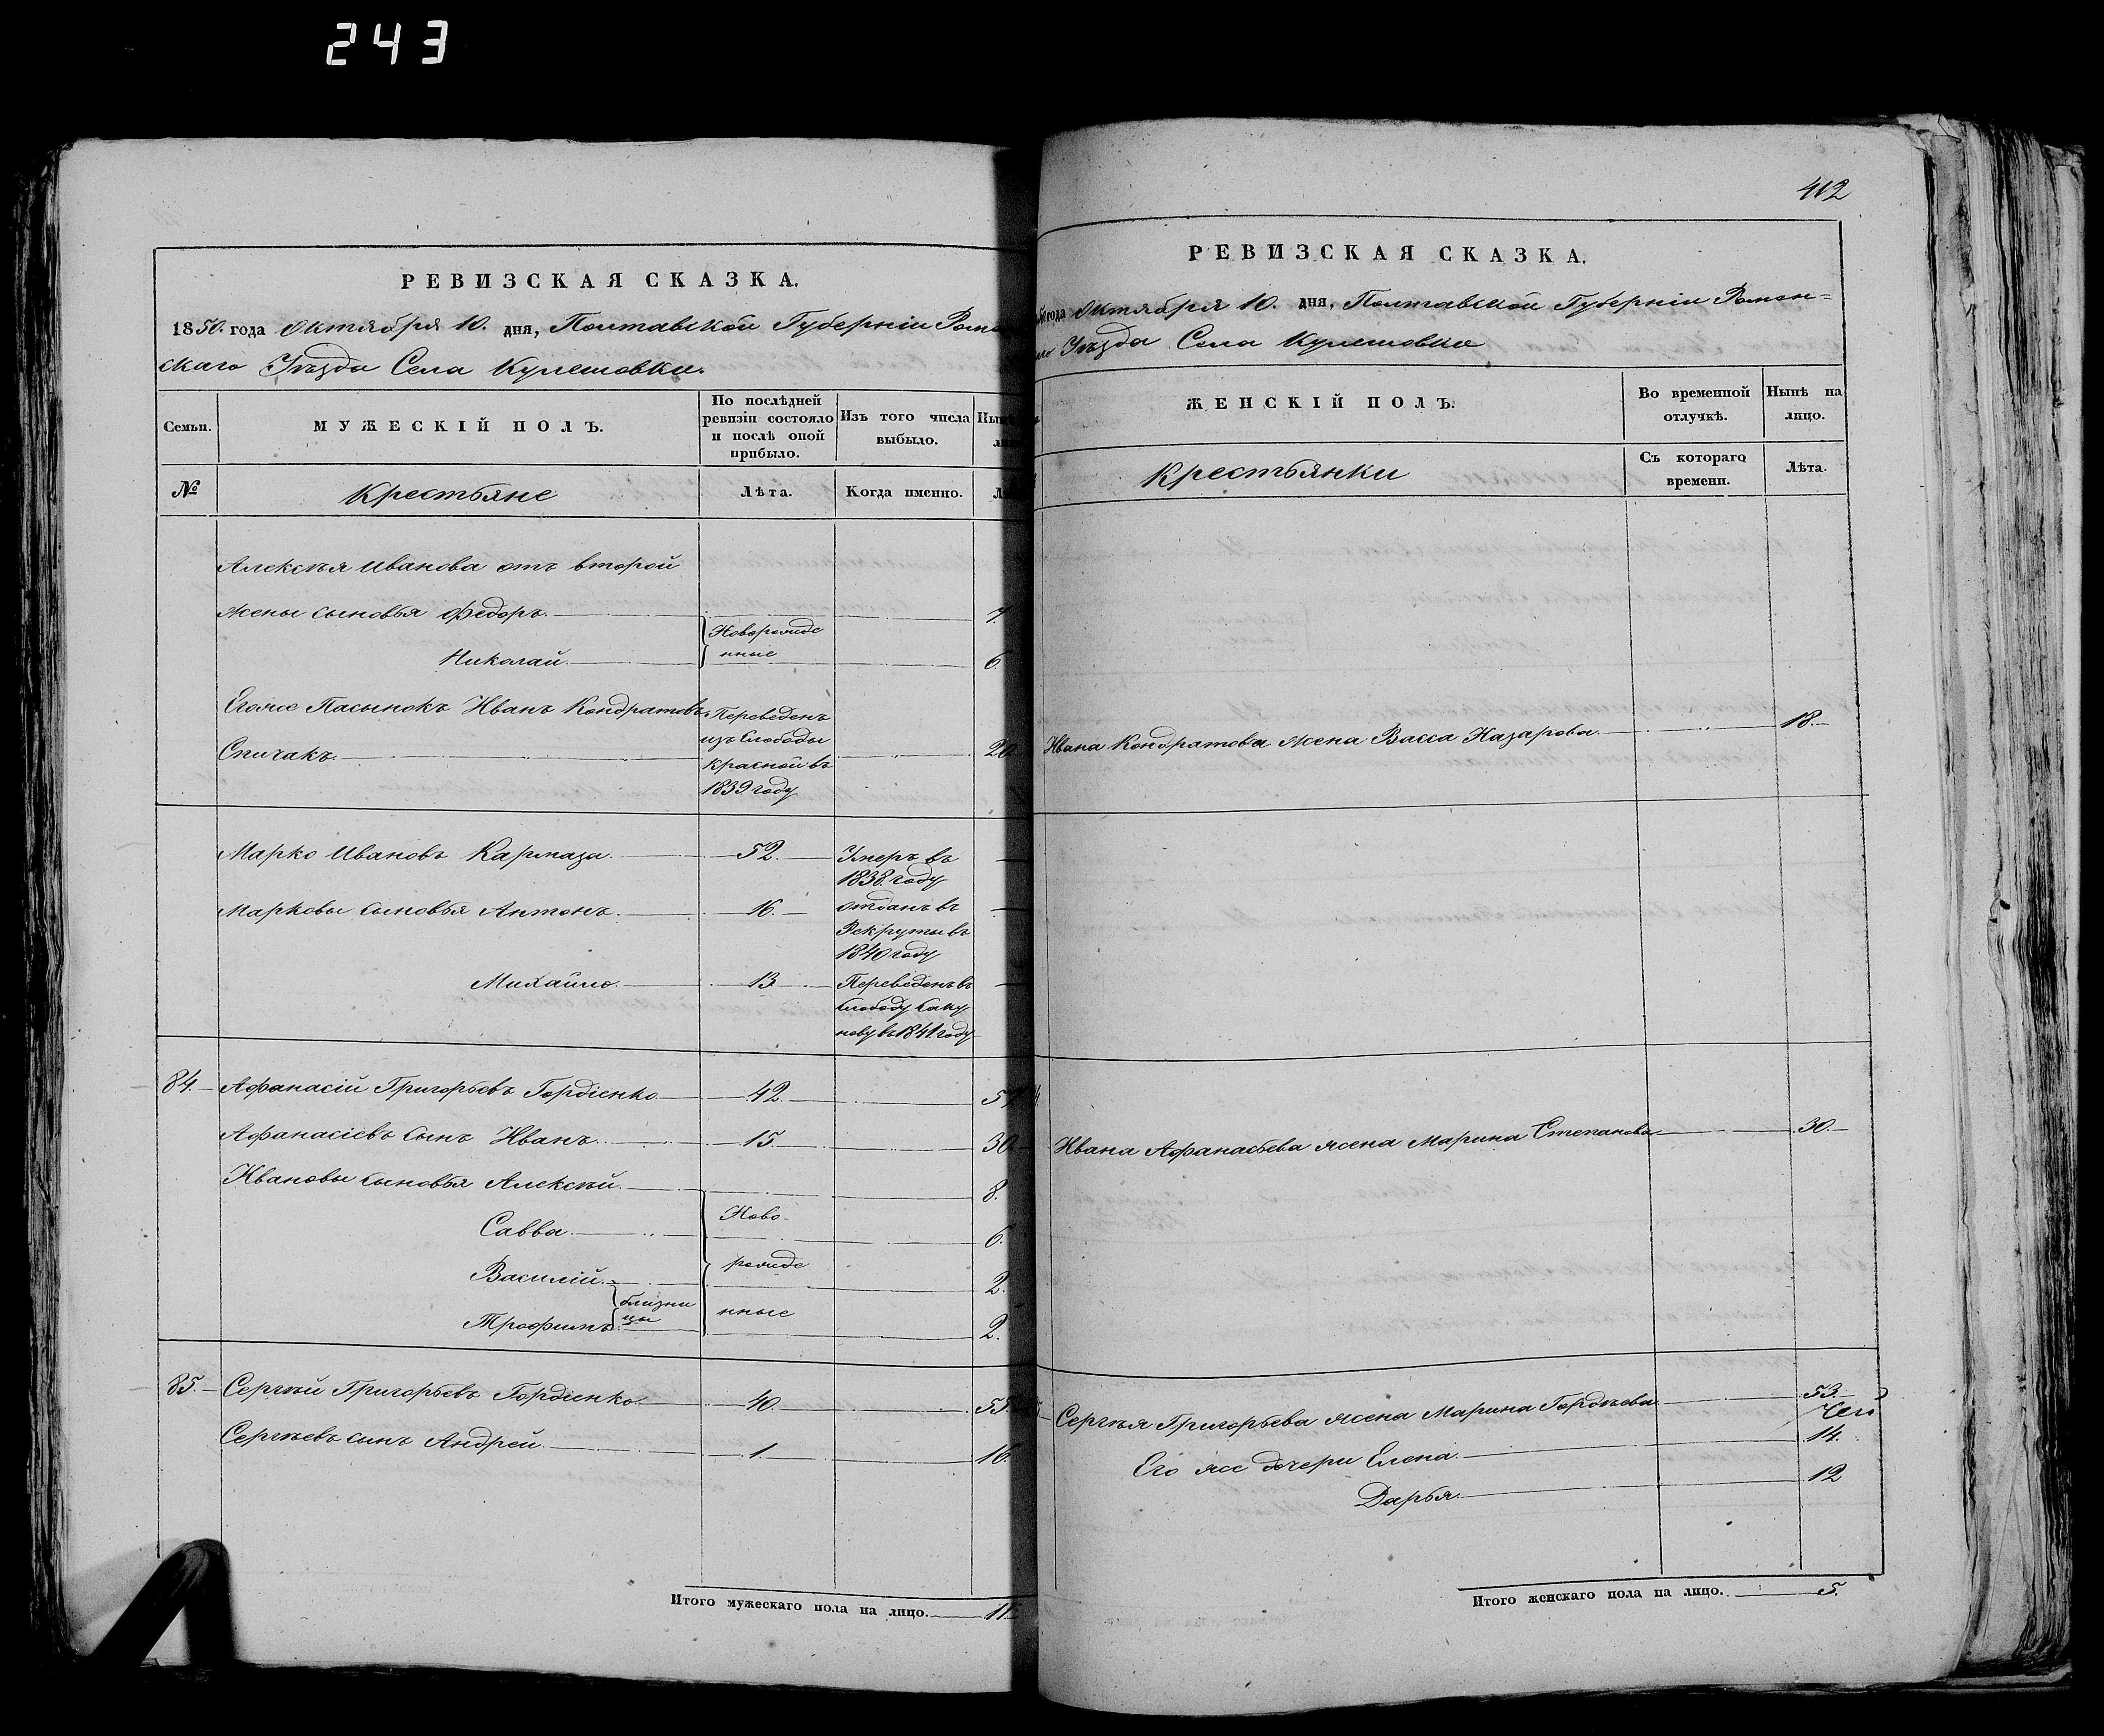 243
РЕВИЗСКАЯ СКАЗКА.
1850. года Октября 10. дня, Полтавской Губерніи Роме
скаго Уѣзда Села Кулешовки.
Семьи.
МУЖЕСКІЙ ПОЛЪ.
По послѣдней ревизіи состояло и послѣ оной прибыло.
Изъ того числа выбыло.
№
Крестьяне
Лѣта.
Когда именно.
Алексѣя Иванова отъ второй
жены сыновья Федоръ. 7.
Николай. 6.
Новорожде
нные
Егоже Пасынокъ Иванъ Кондратовъ
Спичакъ. 20
Переведенъ
изъ Слободы
Красной въ
1839 году
Марко Ивановъ Кармаза. 52. Умеръ въ
1838. году
Марковы сыновья Антонъ. 16. отданъ въ
Рекруты въ
1840 году
Михайло. 13 Переведенъ въ
Слободу Саку
нову въ 1841. году
84. Афанасій Григорьевъ Гордіенко 42. 57
Афанасіевъ сынъ Иванъ. 15. 30.
Ивановы сыновья Алексѣй. 8.
Савва. 6.
Василій. 2.
Трофимъ. 2.
близни
цы
Ново
рожде
нные
85. Сергѣй Григорьевъ Гордіенко. 40. 55
Сергѣевъ сынъ Андрей. 1. 16.
Итого мужескаго пола на лицо. 11.
412
РЕВИЗСКАЯ СКАЗКА.
года Октября 10. дня, Полтавской Губерніи Ромен=
Уѣзда Села Кулешовки
ЖЕНСКІЙ ПОЛЪ.
Во временной отлучкѣ.
Нынѣ на лицо.
Крестьянки
Съ котораго времени.
Лѣта.
Ивана Кондратова жена Васса Назарова. 18.
Ивана Афанасьева жена Марина Степанова 30.
Сергѣя Григорьева жена Марина Гордѣева 53.
Его же дочери Елена. 14.
Дарья. 12
Итого женскаго пола на лицо. 5.